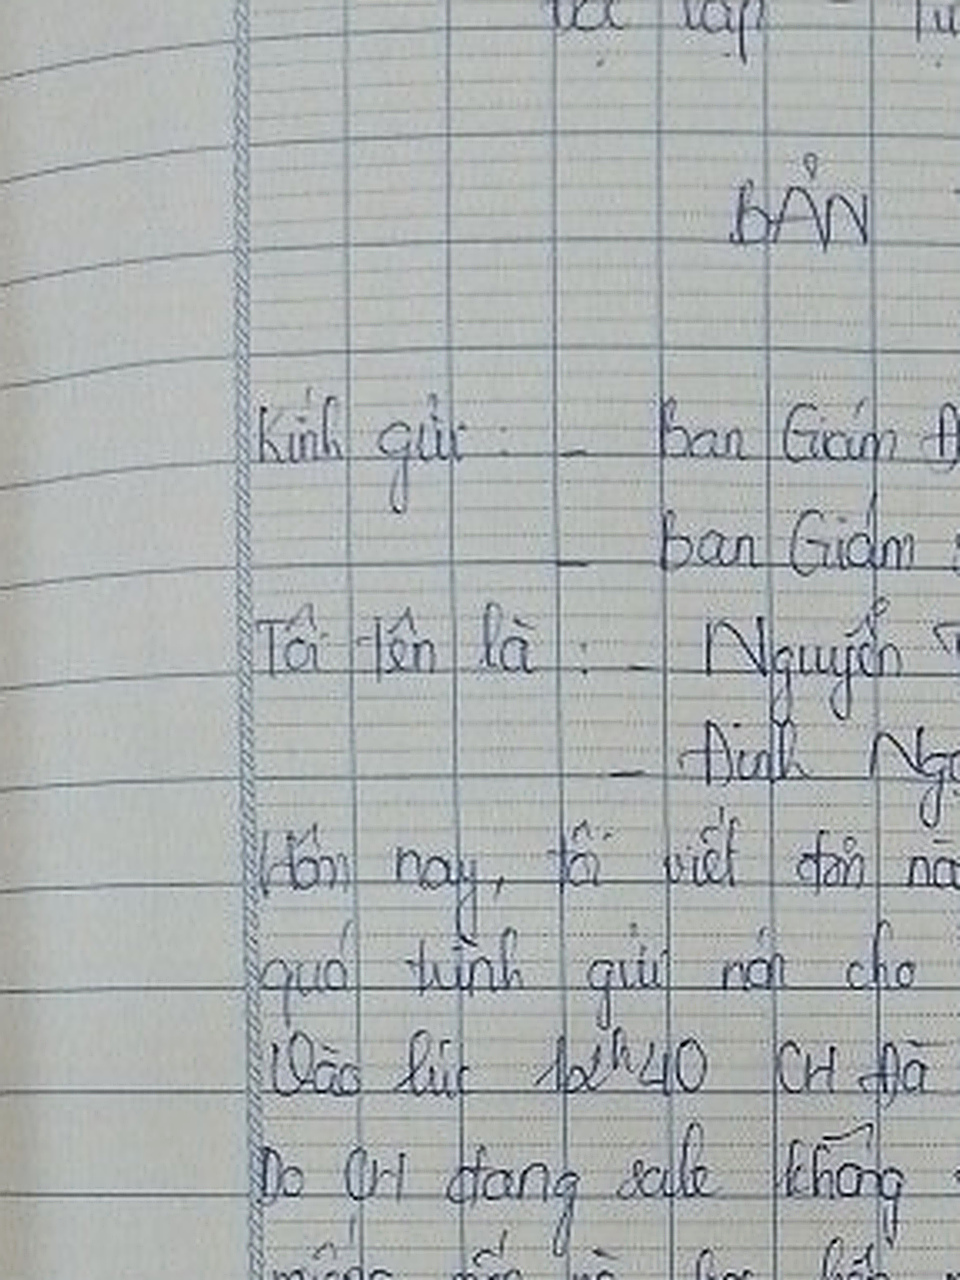 Độc lập - Tự
BẢN
Kính gửi : - Ban Giám Đ
- Ban Giám
Tôi tên là : - Nguyễn
- Đinh Ngọ
Hôm nay, tôi viết đơn nà
quá trình gửi nón cho
Vào lúc 12h40 CH đã
Do CH đang sale không